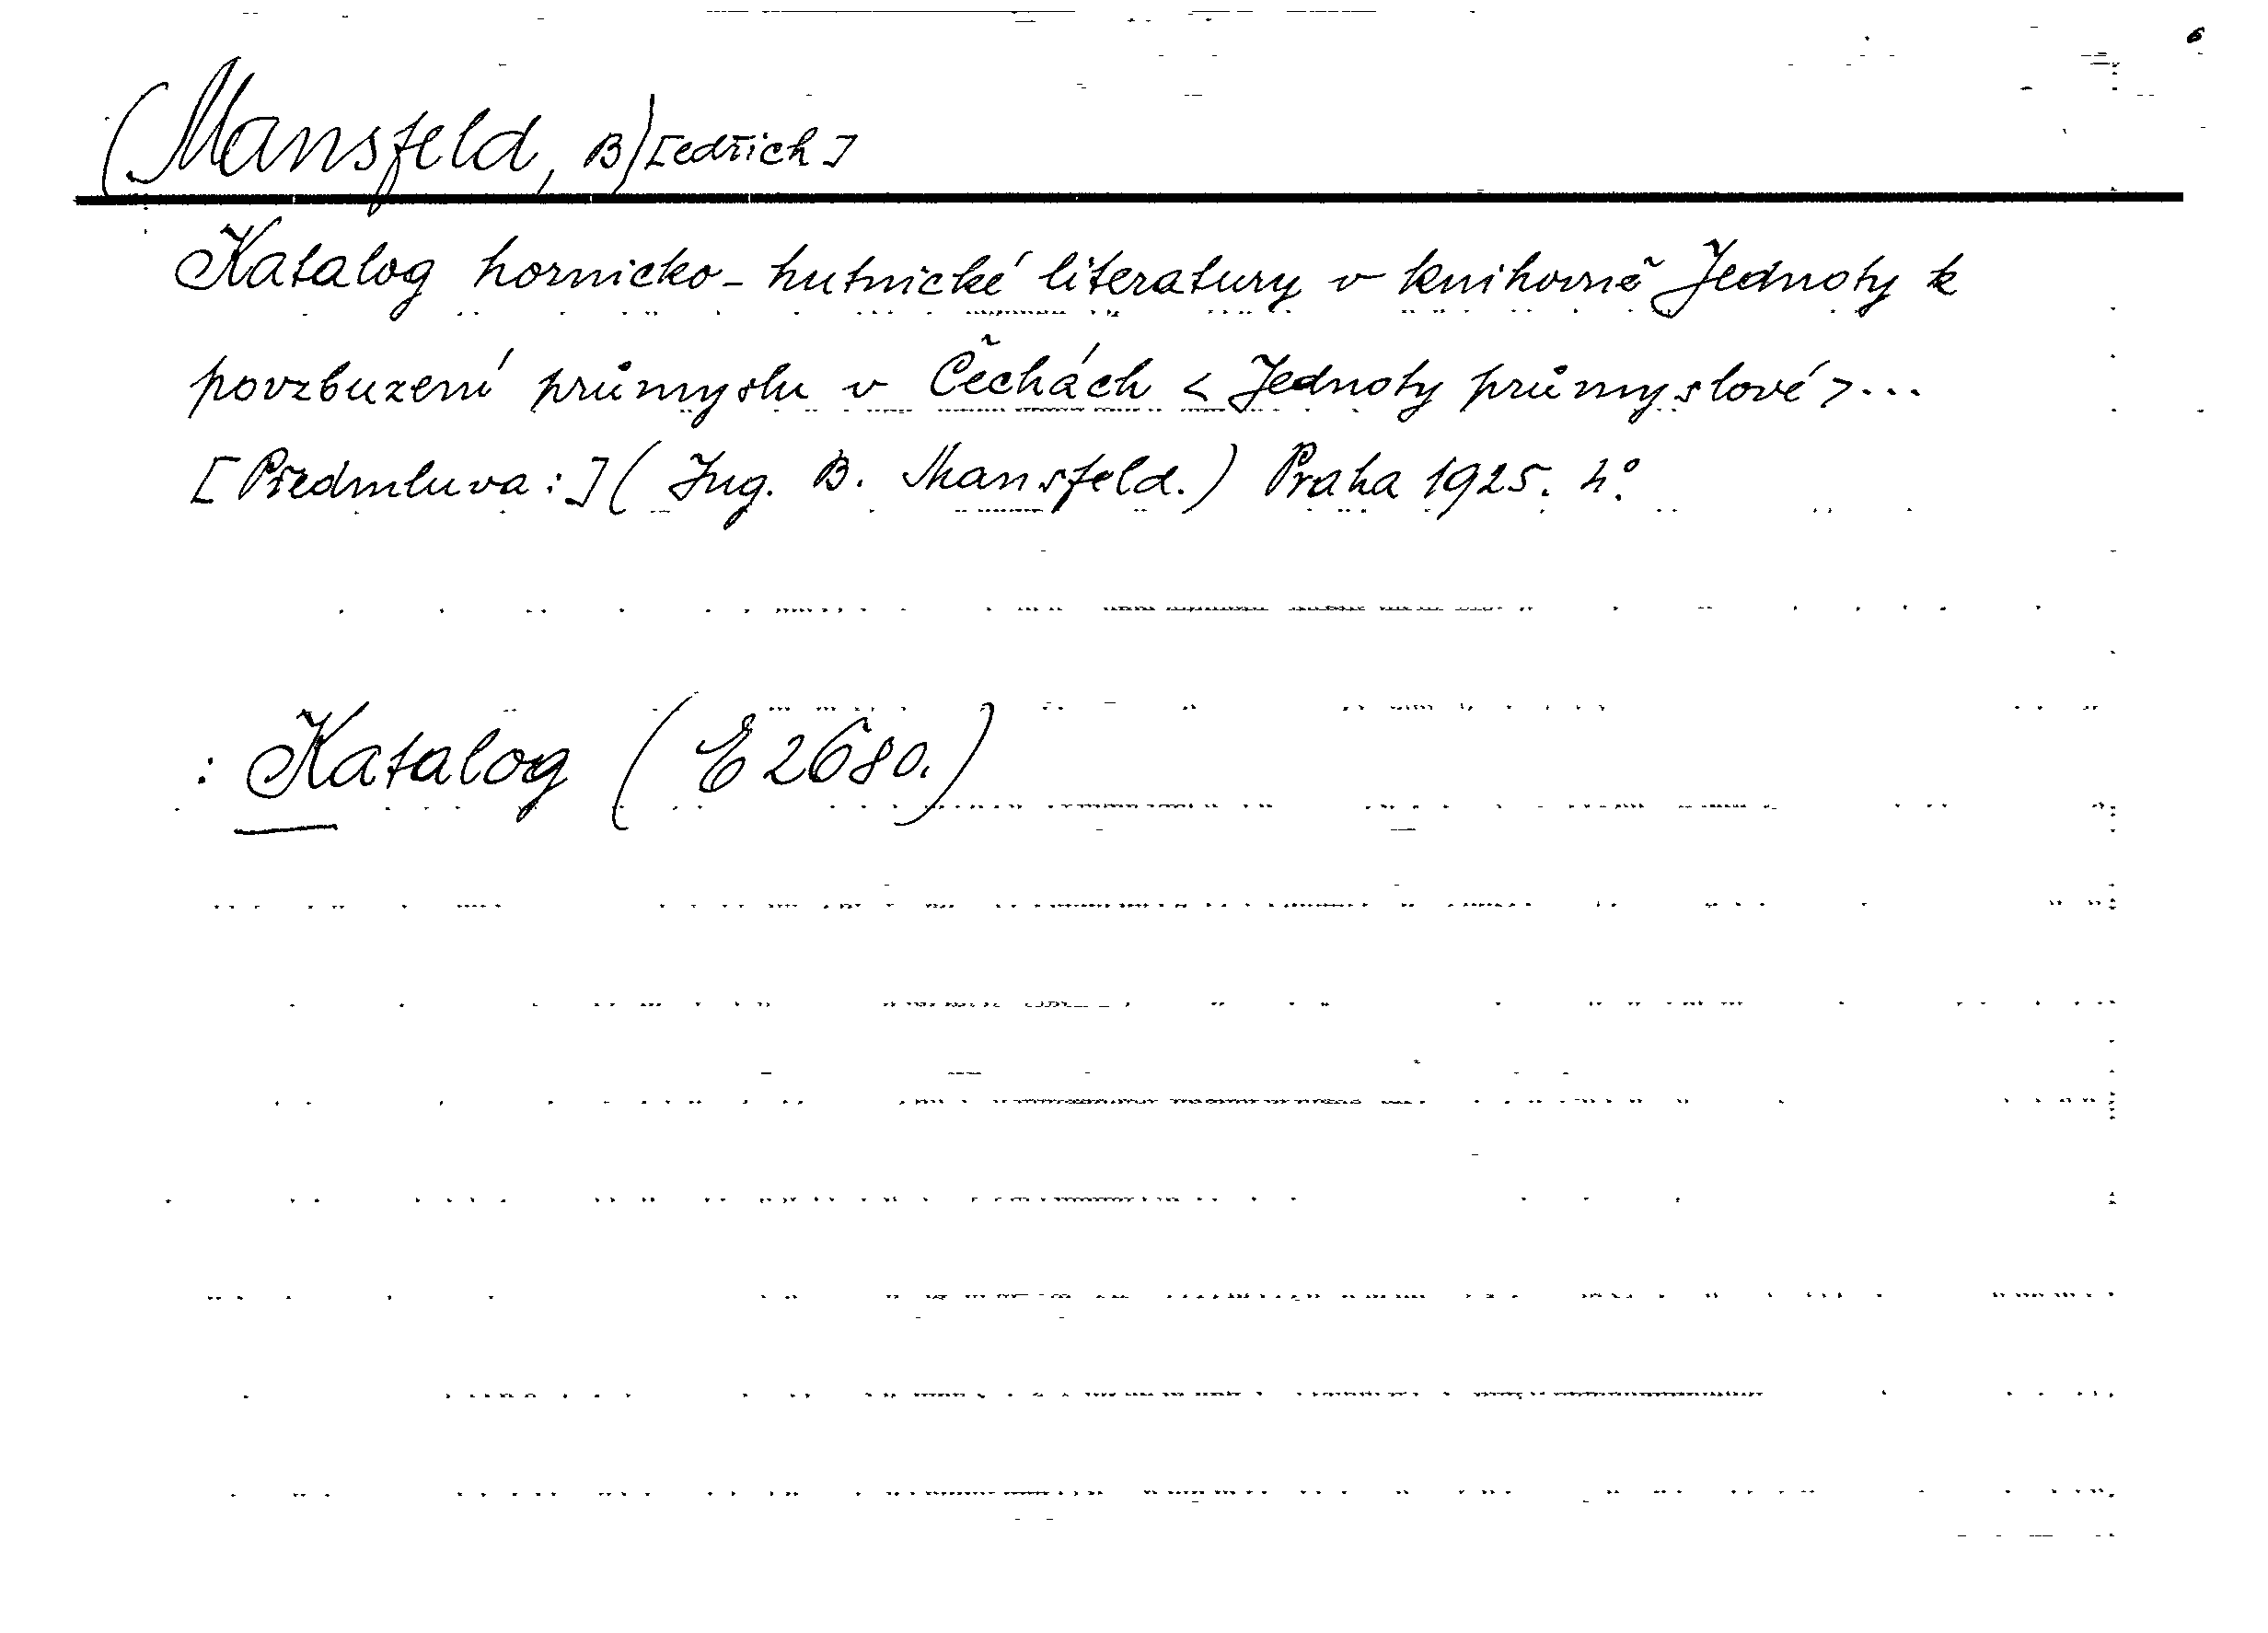 (Mansfeld, B)[edřich]
Katalog hornicko-hutnické literatury v knihovně Jednoty k
povzbuzení průmyslu v Čechách < Jednoty průmyslové > ...
[Předmluva:] (Ing. B. Mansfeld.) Praha 1925. 4°.
: Katalog (E 2680.)